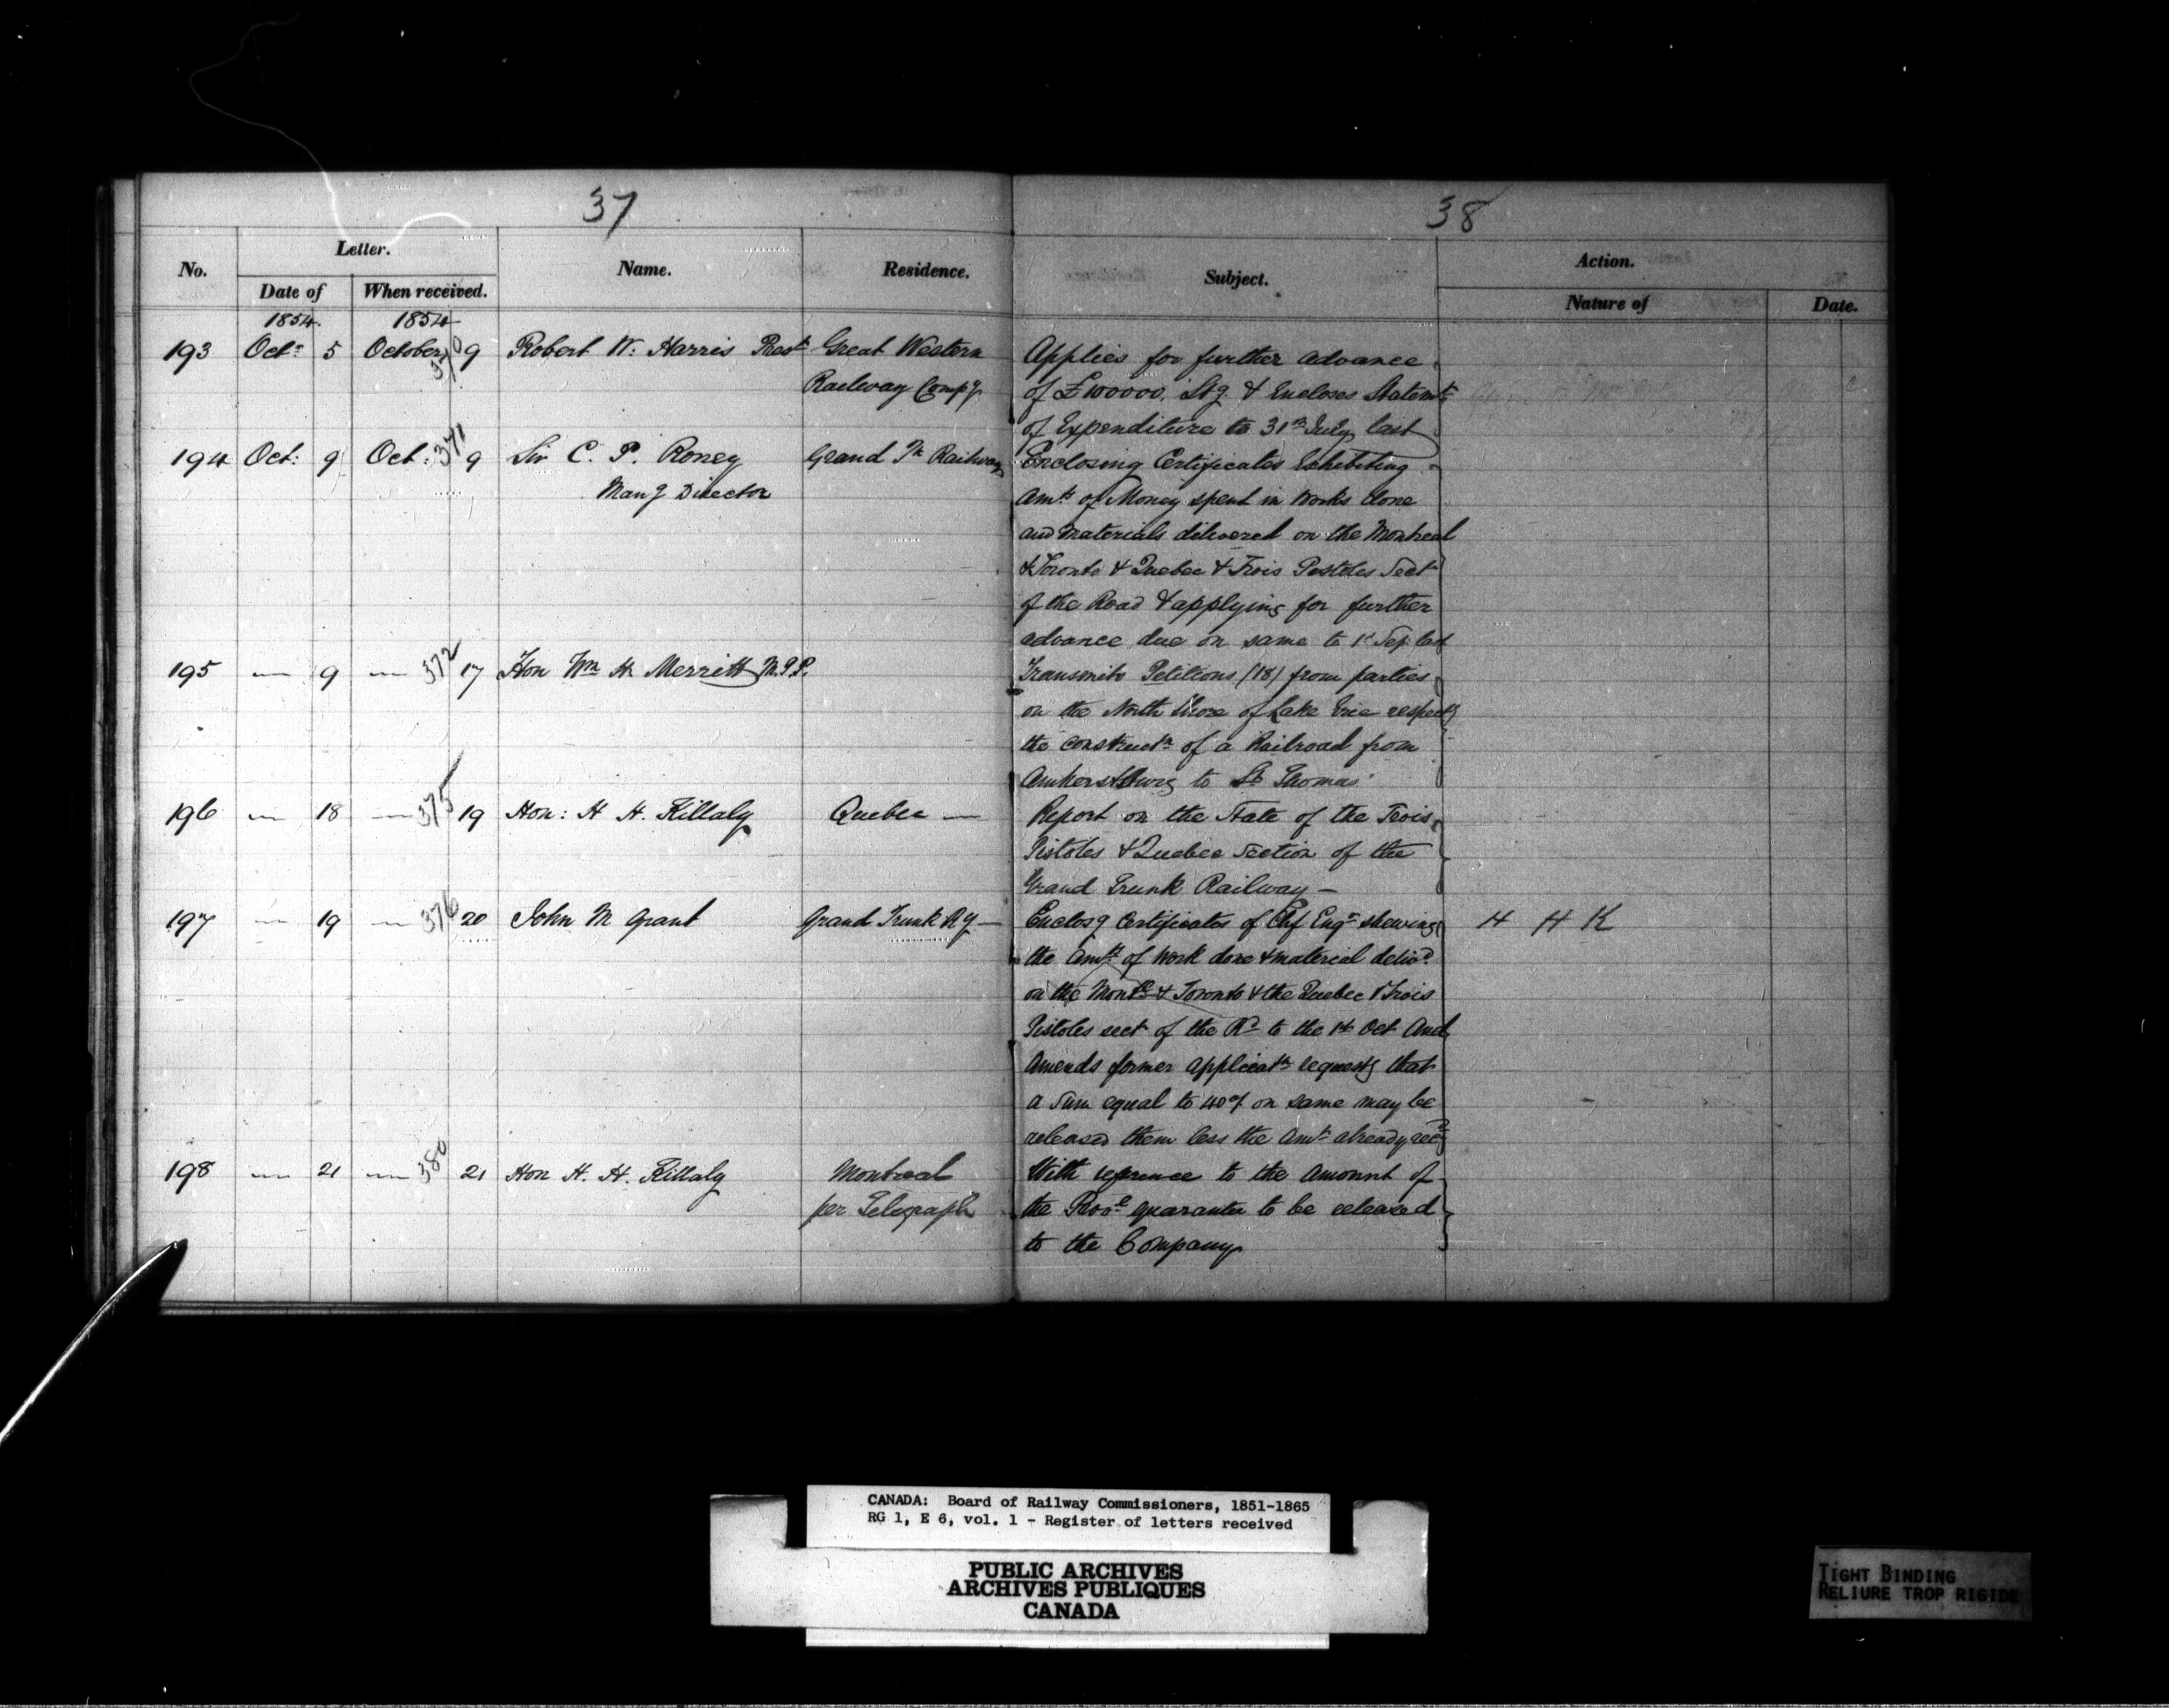 37
38
No. Letter. Name. Residence. Subject. Action.
Date of When received. Nature of Date.
1854. 1854
193 Octr 5 October 370 9 Robert W. Harris Prest Great Western Applies for further advance
Railway Compy of £100000. Stg. & Encloses Statemt
of Expenditure to 31st July last
194 Oct: 9 Oct: 371 9 Sir C. P. Roney Grand Tk Railway Enclosing Certificates Exhibiting
Mang Director Amts of Money spent in Works done
and Materials delivered on the Montreal
& Toronto & Quebec & Trois Pistoles Sect
of the Road & applying for further
advance due on same to 1st Sep: last
195 — 9 — 372 17 Hon Wm H Merritt M.P.P. Transmits Petitions (18) from parties
on the North Shore of Lake Erie respectg
the constructn of a Railroad from
Amherstburg to St Thomas
196 — 18 — 375 19 Hon: H H. Killaly Quebec — Report on the State of the Trois
Pistoles & Quebec Section of the
Grand Trunk Railway —
197 — 19 — 376 20 John M Grant Grand Trunk Ry — Enclosg Certificates of Chf Engr shewing H H K
the Amt of Work done & material delivd
on the Montl & Toronto & the Quebec & Trois
Pistoles sect of the Rd to the 1st Oct And
Amends former applicatn requestg that
a Sum equal to 40% on same may be
released them less the Amt already recd
198 — 21 — 380 21 Hon H. H. Killaly Montreal With refrence to the Amount of
per Telegraph the Provl guarantee to be released
to the Company
CANADA: Board of Railway Commissioners, 1851-1865
RG 1, E 6, vol. 1 - Register of letters received
PUBLIC ARCHIVES
ARCHIVES PUBLIQUES
CANADA
TIGHT BINDING
RELIURE TROP RIGIDE